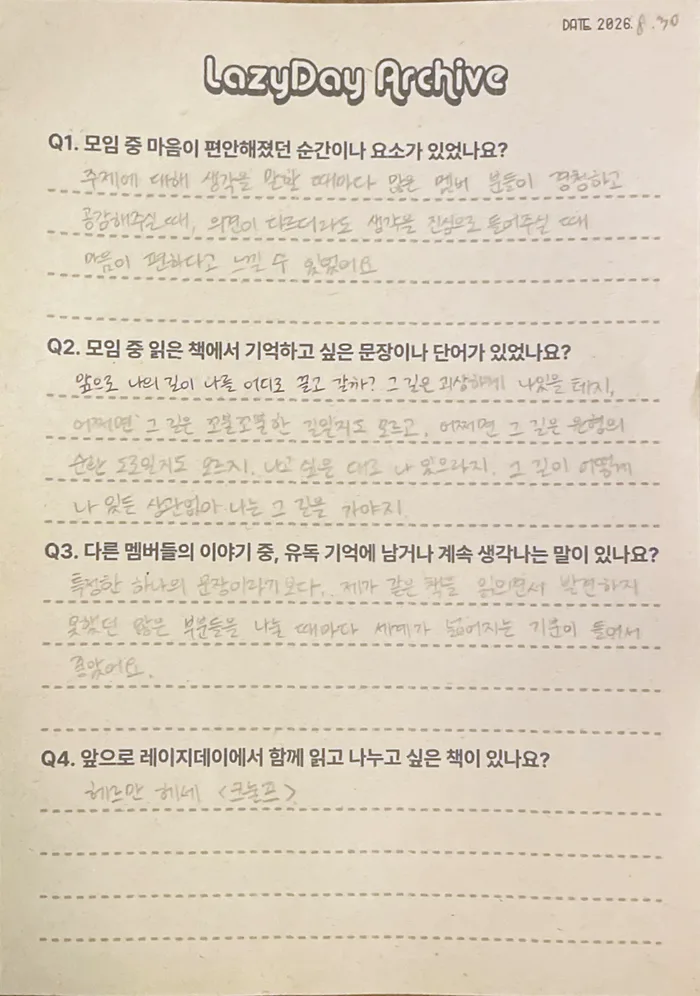 DATE 2026. 8. 30
LazyDay Archive
Q1. 모임 중 마음이 편안해졌던 순간이나 요소가 있었나요?
주제에 대해 생각을 말할 때마다 많은 멤버 분들이 경청하고
공감해주실 때, 의견이 다르더라도 생각을 진심으로 들어주실 때
마음이 편하다고 느낄 수 있었어요
Q2. 모임 중 읽은 책에서 기억하고 싶은 문장이나 단어가 있었나요?
앞으로 나의 길이 나를 어디로 끌고 갈까? 그 길은 괴상하게 나있을 테지,
어쩌면 그 길은 꼬불꼬불한 길일지도 모르고, 어쩌면 그 길은 원형의
순환 도로일지도 모르지. 나고 싶은 대로 나 있으라지. 그 길이 어떻게
나 있든 상관없이 나는 그 길을 가야지.
Q3. 다른 멤버들의 이야기 중, 유독 기억에 남거나 계속 생각나는 말이 있나요?
특정한 하나의 문장이라기보다, 제가 같은 책을 읽으면서 발견하지
못했던 많은 부분들을 나눌 때마다 세계가 넓어지는 기분이 들어서
좋았어요.
Q4. 앞으로 레이지데이에서 함께 읽고 나누고 싶은 책이 있나요?
헤르만 헤세 <크눌프>